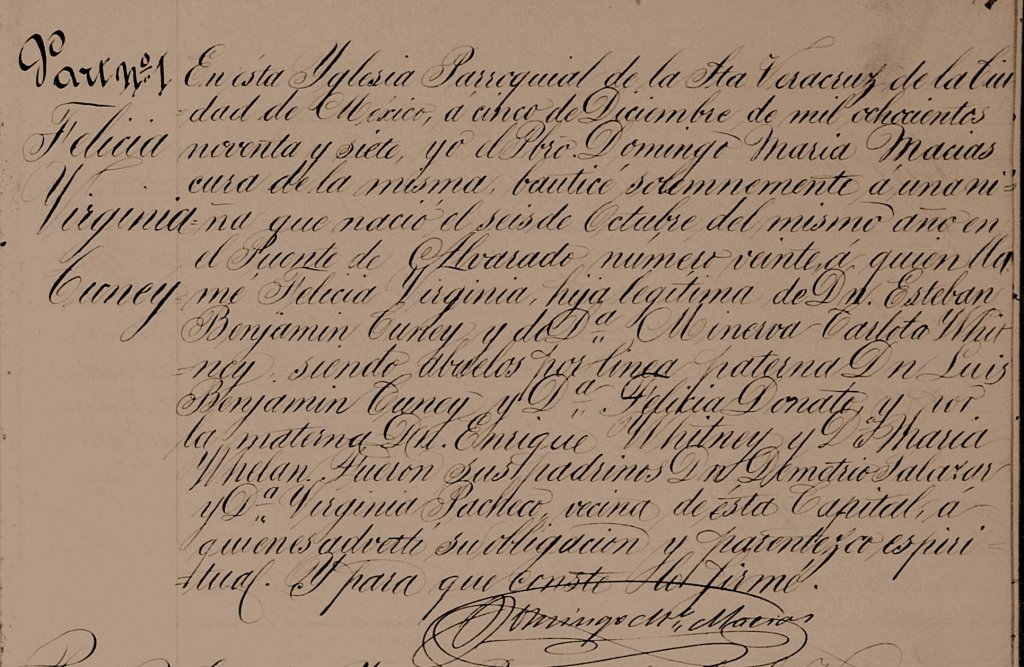 Part. nº 1
Felicia
Virginia
Cuney
En ésta Yglesia Parroquial de la Sta Veracruz de la Ciu-
dad de México, á cinco de Diciembre de mil ochocientos
noventa y siete, yó el Pbro. Domingo Maria Macias
cura de la misma, bauticé solemnemente á una ni-
-ña que nació el seis de Octubre del mismo año en
el Puente de Alvarado, número veinte, á quien lla
-me Felicia Virginia, hija legítima de Dn. Esteban
Benjamin Cuney y de Dª Minerva Carlota Whit-
-ney, siendo abuelos por línea paterna Dn Luis
Benjamin Cuney y Dª Felicia Donato, y por
la materna Dn. Enrique Whitney y Dª Maria
Whelan. Fueron sus padrinos Dn Demetrio Salazar
y Dª Virginia Pacheco, vecina de ésta Capital, á
quienes advertí su obligacion y parentezco espiri-
-tual. Y para que conste lo firmé.
Domingo Mª Macias